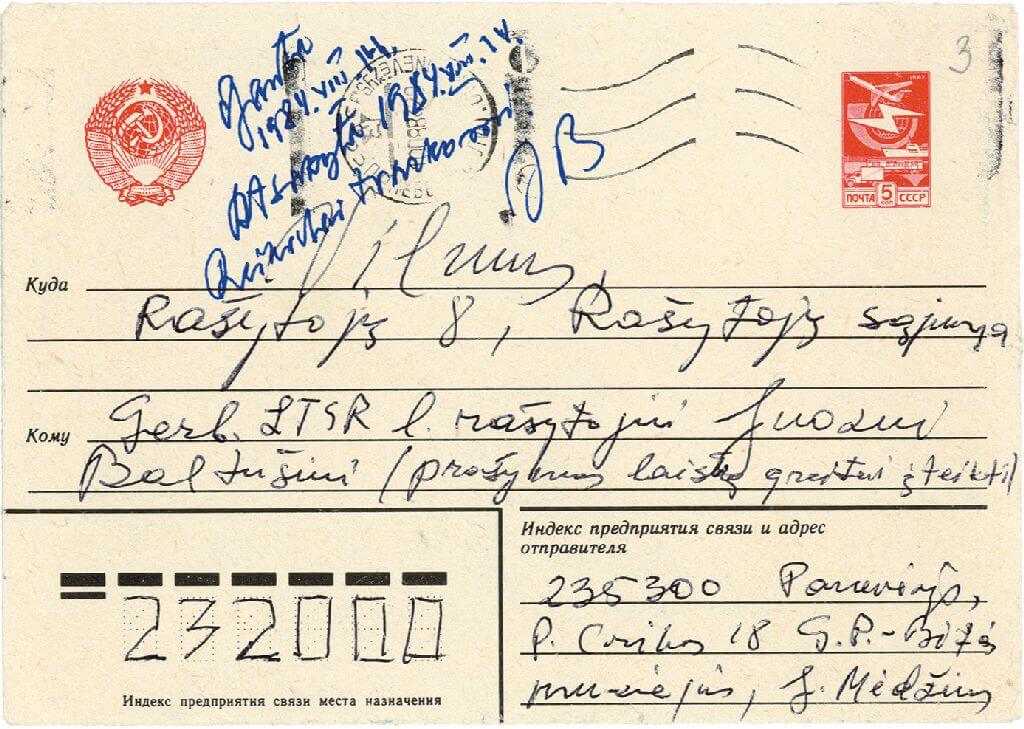 3
Gauta
1984.VIII.14.
Atsakyta 1984.VIII.14.
JB
ПОЧТА 5 КОП СССР
Куда Vilnius,
Rašytojų 8, Rašytojų sąjunga
Кому Gerb. LTSR l. rašytojui Juozui
Baltušiui (prašymas laišką greitai įteikti)
Индекс предприятия связи и адрес
отправителя
235300 Panevėžys,
P. Cvirkos 18 G.P.-Bitės
muziejus,
232000
Индекс предприятия связи места назначения